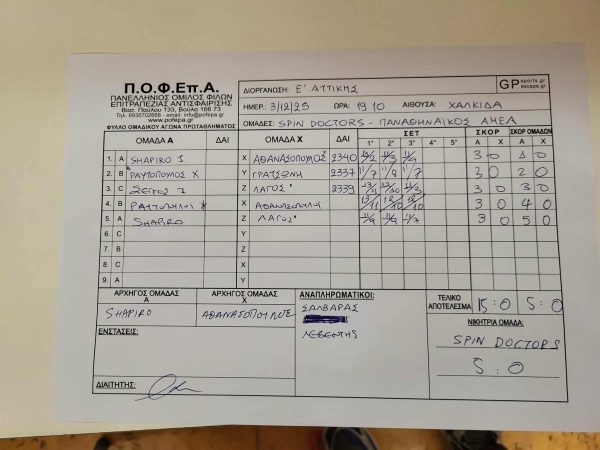 Π.Ο.Φ.Επ.Α.
ΠΑΝΕΛΛΗΝΙΟΣ ΟΜΙΛΟΣ ΦΙΛΩΝ
ΕΠΙΤΡΑΠΕΖΙΑΣ ΑΝΤΙΣΦΑΙΡΙΣΗΣ
Βασ. Παύλου 133, Βούλα 166 73
Τηλ. 6936702668 - email: info@pofepa.gr
www.pofepa.gr
ΦΥΛΛΟ ΟΜΑΔΙΚΟΥ ΑΓΩΝΑ ΠΡΩΤΑΘΛΗΜΑΤΟΣ
ΔΙΟΡΓΑΝΩΣΗ: Ε' ΑΤΤΙΚΗΣ
GP sports.gr escape.gr
ΗΜΕΡ.: 3/12/25 ΩΡΑ: 19 10 ΑΙΘΟΥΣΑ: ΧΑΛΚΙΔΑ
ΟΜΑΔΕΣ: SPIN DOCTORS - ΠΑΝΑΘΗΝΑΙΚΟΣ ΑΜΕΑ
ΟΜΑΔΑ Α ΔΑΙ ΟΜΑΔΑ Χ ΔΑΙ ΣΕΤ ΣΚΟΡ ΣΚΟΡ ΟΜΑΔΩΝ
1" 2" 3" 4" 5" Α Χ Α Χ
1. Α SHAPIRO Χ ΑΘΑΝΑΣΟΠΟΥΛΟΣ 2340 3 0 1 0
2. Β Υ 2337 11/7 3 0 2 0
3. C Ζ ΛΑΓΟΣ 2339 3 0 3 0
4. Β Χ 13/11 12/10 12/10 3 0 4 0
5. Α SHAPIRO Ζ ΛΑΓΟΣ 11/9 11/9 11/7 3 0 5 0
6. C Υ
7. Β Ζ
8. C Χ
9. Α Υ
ΑΡΧΗΓΟΣ ΟΜΑΔΑΣ Α ΑΡΧΗΓΟΣ ΟΜΑΔΑΣ Χ
SHAPIRO ΑΘΑΝΑΣΟΠΟΥΛΟΣ
ΑΝΑΠΛΗΡΩΜΑΤΙΚΟΙ:
ΣΑΛΒΑΡΑΣ
ΤΕΛΙΚΟ ΑΠΟΤΕΛΕΣΜΑ 15:0 5:0
ΕΝΣΤΑΣΕΙΣ:
ΝΙΚΗΤΡΙΑ ΟΜΑΔΑ:
SPIN DOCTORS
5:0
ΔΙΑΙΤΗΤΗΣ: